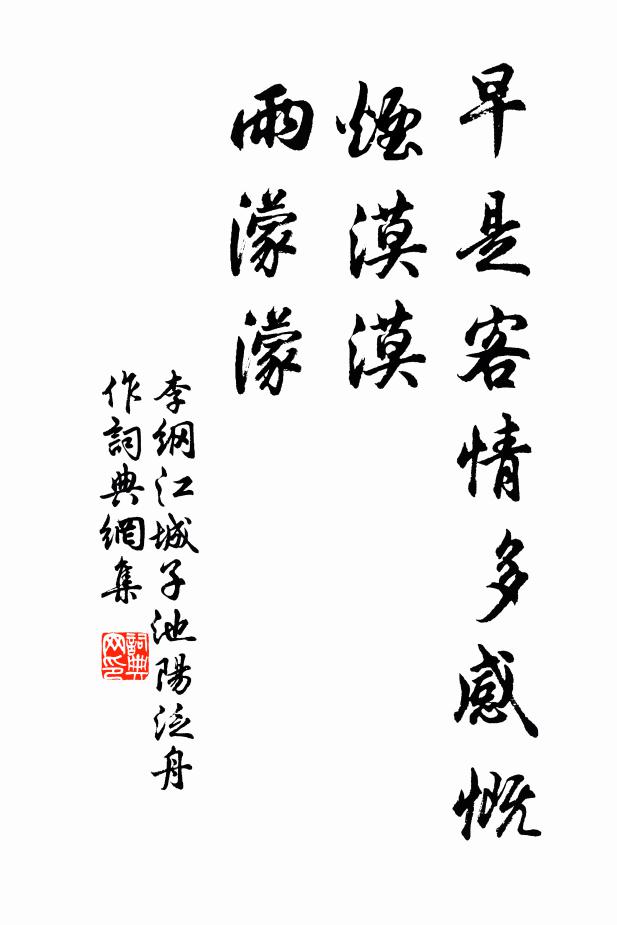 早是客情多感慨
煙漠漠
雨濛濛
李綱江城子池陽泛舟
作詞典網集
詞典网印